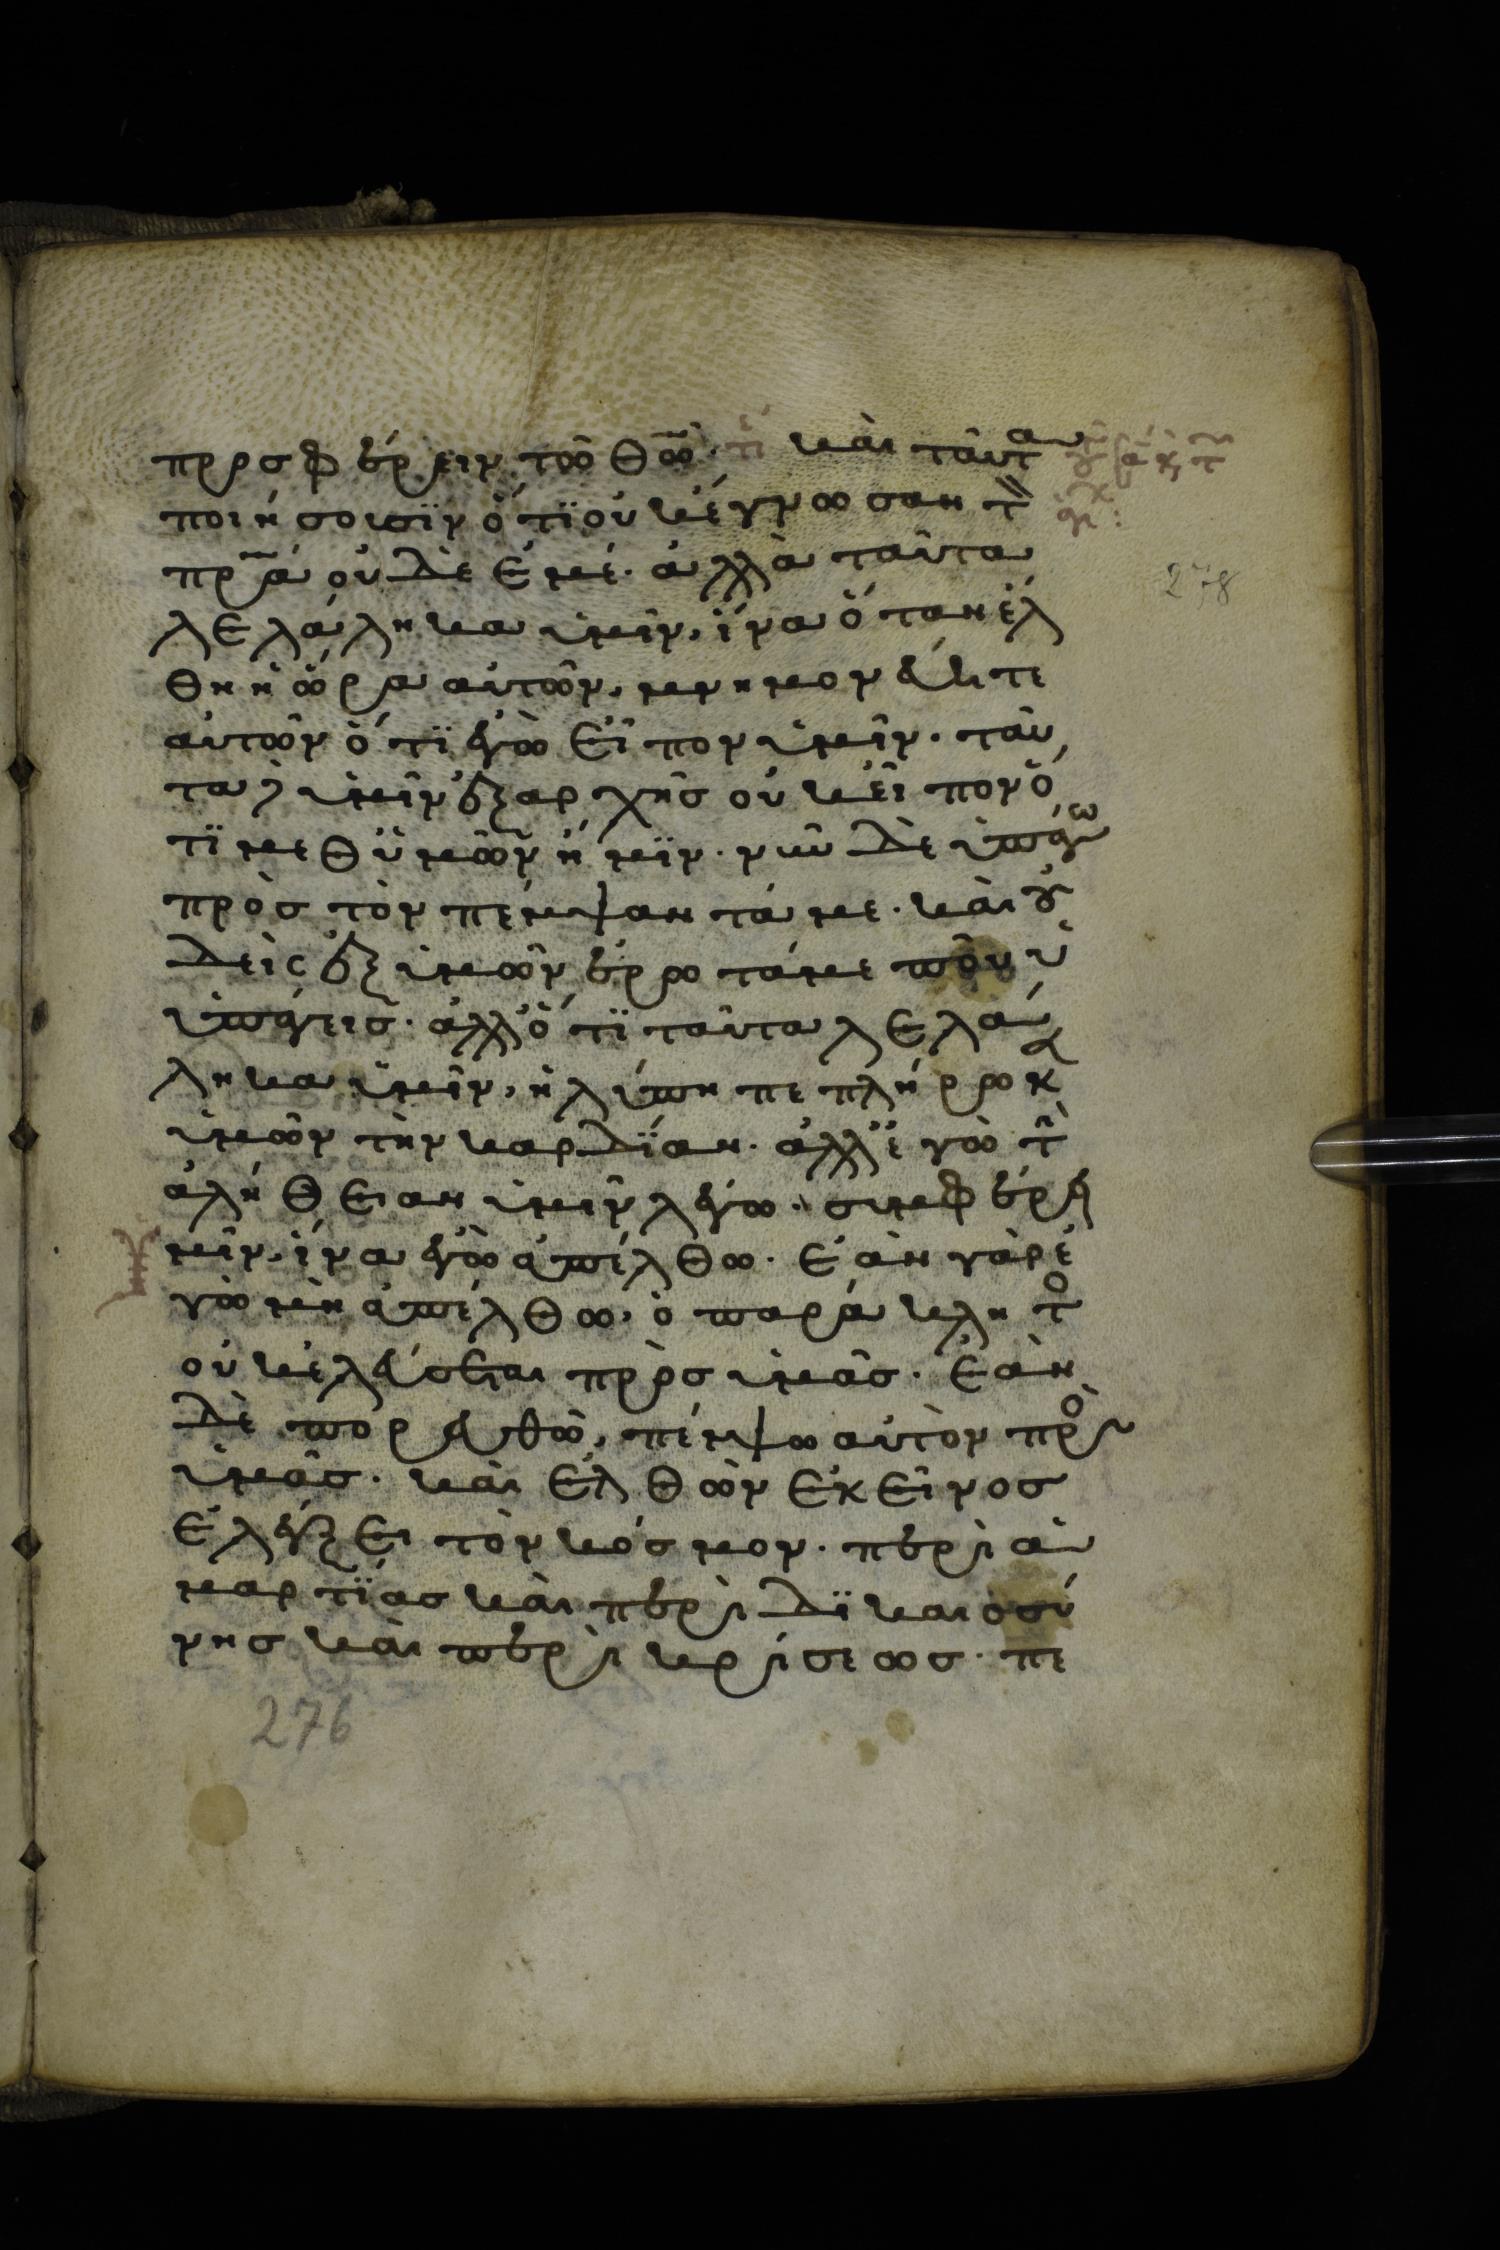 προσφέρειν τῶ θω̅. καὶ ταῦτα
ποιήσουσϊν ὅτϊ οὐκ ἔγνωσαν τὸν
πρ̅α οὐδὲ ἐμέ. ἀλλὰ ταῦτα
λελάληκα ὑμῖν, ἵνα ὅταν ἔλ
θη ἡ ὥρα αὐτῶν, μνημονεύητε
αὐτῶν ὅτϊ ἐγὼ εἶπον ὑμῖν. ταῦ
τα δ ὑμῖν ἐξαρχῆς οὐκ εἶπον ὅ
τϊ μεθ ὑμῶν ἤμϊν. νῦν δὲ ὑπάγω
πρὸς τὸν πέμψαντά με. καὶ οὐ
δεὶς ἐξ ὑμῶν ἐρωτά με ποῦ ὑ
ὑπάγεις. ἀλλ ὅτϊ ταῦτα λελά
ληκα ὑμῖν, ἡ λύπη πεπλήρωκε
ὑμῶν τὴν καρδϊαν. ἀλλ ἐγὼ τὴν
ἀλήθειαν ὑμῖν λέγω. συμφέρει
μῖν, ἵνα ἐγὼ ἀπέλθω. ἐὰν γὰρ ἐ
γὼ μὴ ἀπέλθω, ὁ παράκλητος
οὐκ ἐλεύσεται πρὸς ὑμᾶς. ἐὰν
δὲ πορευθῶ, πέμψω αὐτὸν πρὸς
ὑμᾶς. καὶ ἐλθὼν ἐκεῖνος
ἐλέγξει τὸν κόσμον. περὶ ἁ
μαρτϊας καὶ περὶ δϊκαιοσύ
νης καὶ περὶ κρίσεως. πε
276
278